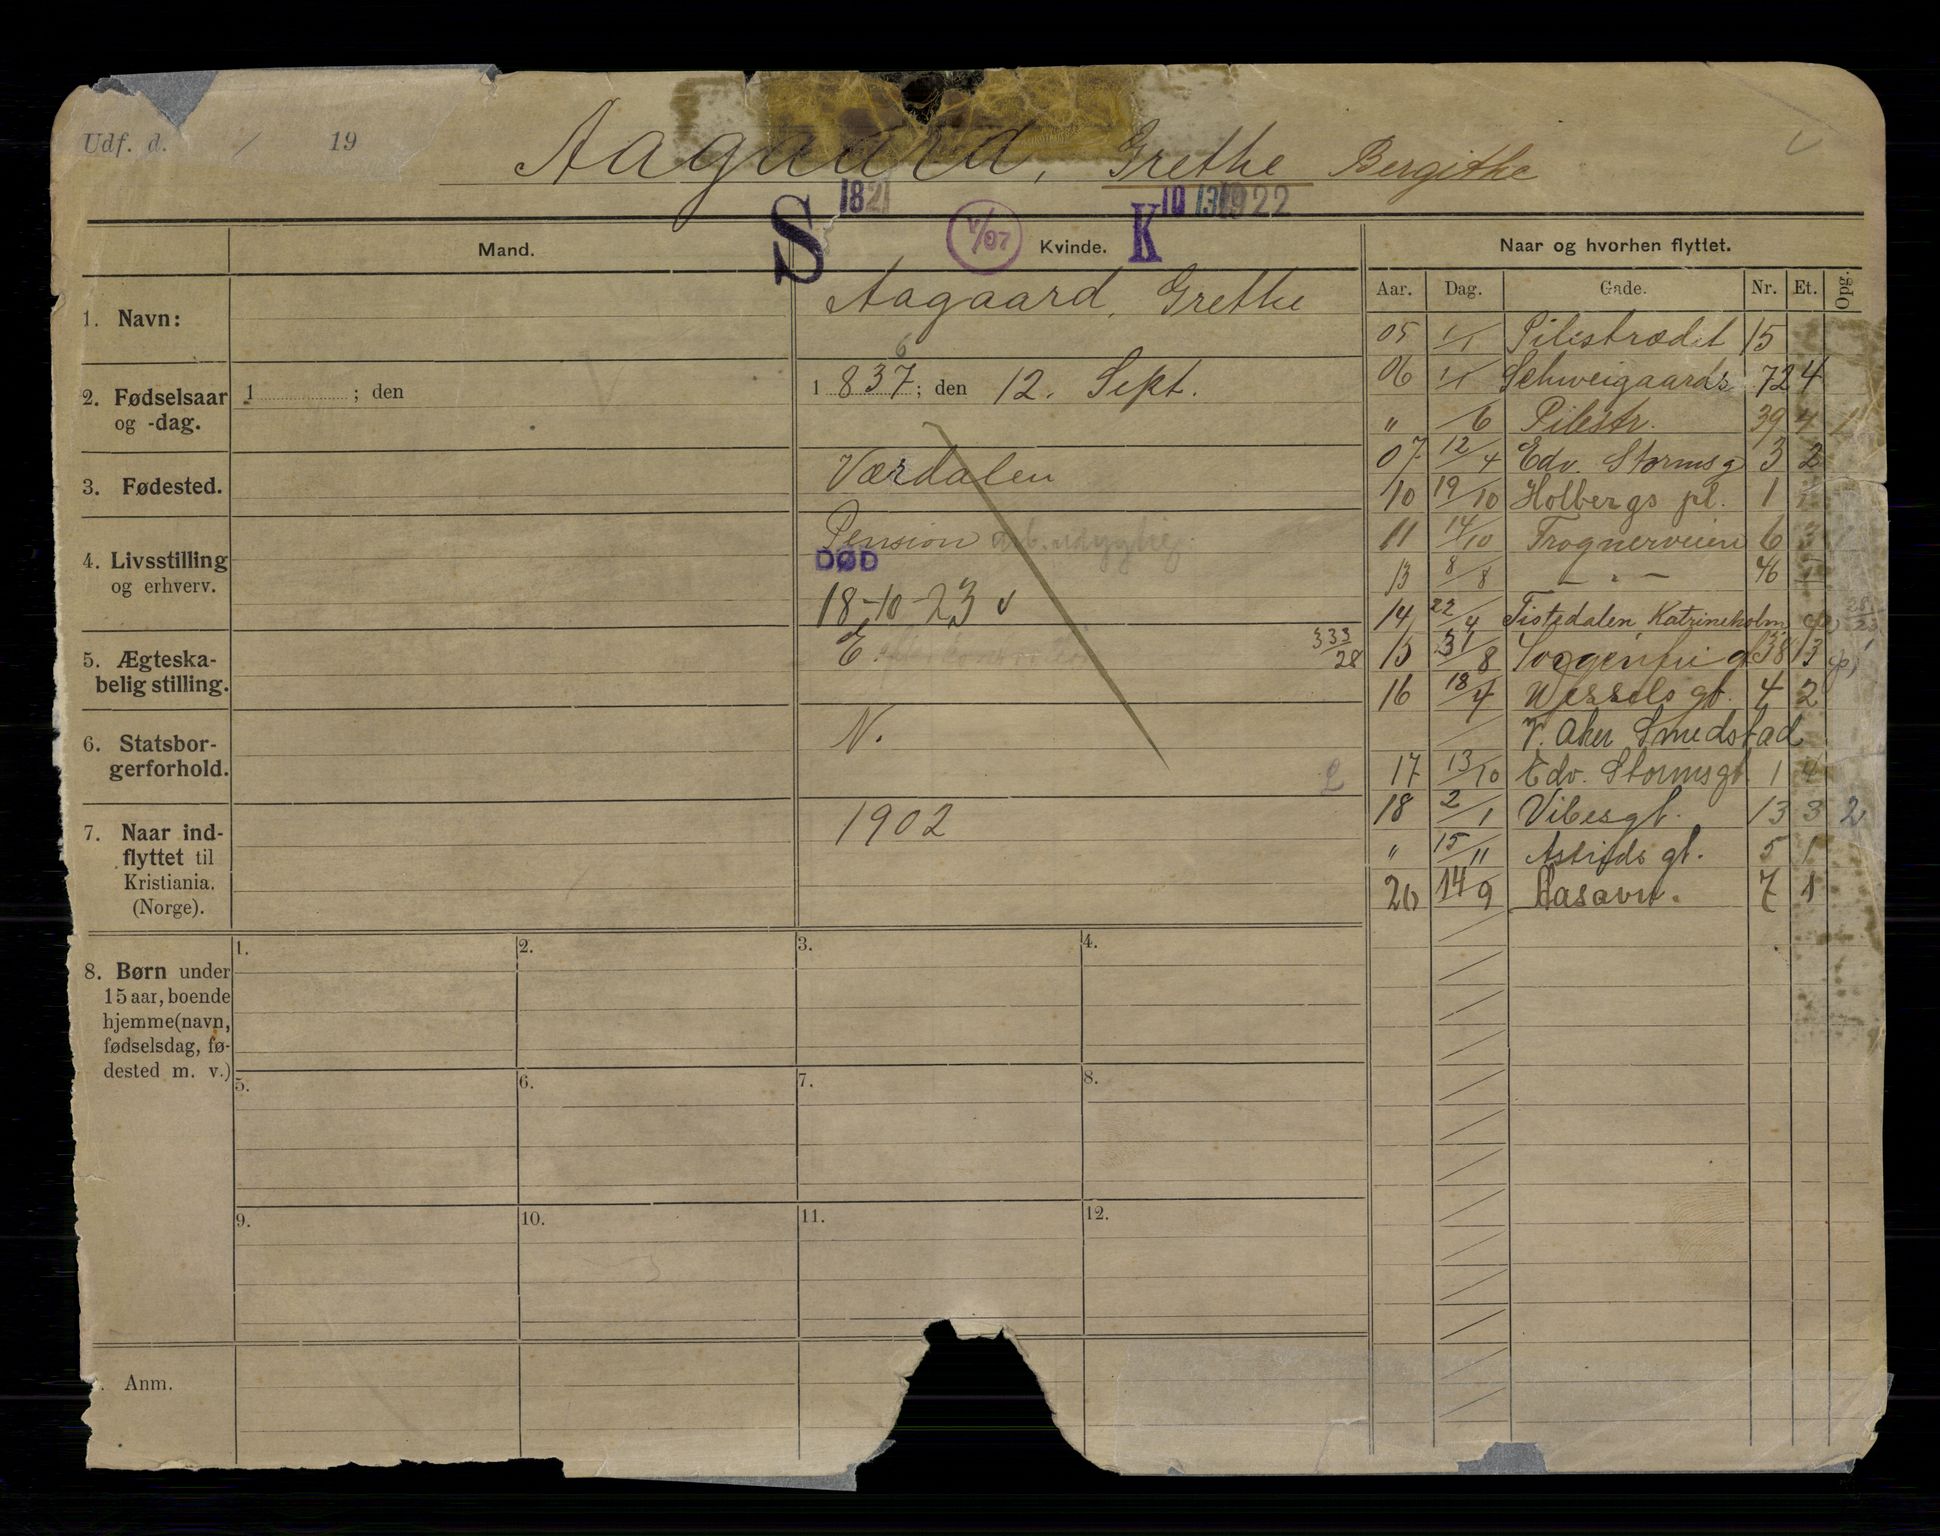 Udf. d. / 19
Aagaard, Grethe Bergithe
S 182 V/07 K 10 13 1922
Mand.
Kvinde.
Naar og hvorhen flyttet.
Aar. Dag. Gade. Nr. Et. Opg.
1. Navn:
Aagaard, Grethe
2. Fødselsaar
og -dag.
1 ; den
6
1 837; den 12. Sept.
3. Fødested.
Værdalen
4. Livsstilling
og erhverv.
Pension
DØD
18-10-23
5. Ægteska-
belig stilling.
E.
333/28
6. Statsbor-
gerforhold.
N.
7. Naar ind-
flyttet til
Kristiania.
(Norge).
1902
05 1/1 Pilestrædet 15
06 1/1 Schweigaards 72 4
" /6 Pilestr. 39 4 1
07 12/4 Edv. Stormsg 3 2
10 19/10 Holbergs pl. 1 1
11 14/10 Frognerveien 6 3
13 8/8 — " — 46 1
14 22/4 Tistedalen Katrineholm
15 31/8 Soggenfri g 38 3
16 18/4 Wessels gt. 4 2
/ V. Aker Smedstad
17 13/10 Edv. Stormsgt. 1 4
18 2/1 Vibesgt. 13 3 2
" 15/11 Astrids gt. 5 1
20 14/9 Aasavn. 7 1
8. Børn under
15 aar, boende
hjemme (navn,
fødselsdag, fø-
dested m. v.)
1. 2. 3. 4.
5. 6. 7. 8.
9. 10. 11. 12.
Anm.